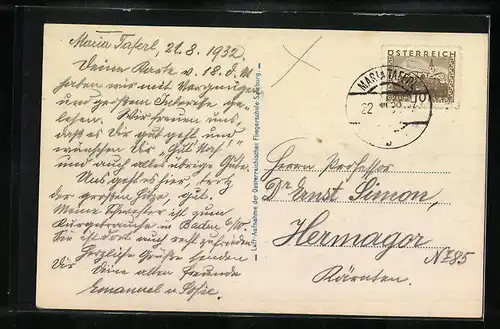 Maria Taferl, 21.8.1932.
Deine Karte v. 18. d. M
haben wir mit Vergnügen
und großem Interesse ge-
lesen. Wir freuen uns,
daß es Dir gut geht und
wünschen Dir "Gute Kur!"
und auch alles übrige Gute.
Uns geht es hier, trotz
der großen Hitze, gut.
Meine Schwester ist zum
Kurgebrauche in Baden b/W.
Sie ist dort auch recht zufrieden.
Herzliche Grüße senden
Dir Deine alten Freunde
Emanuel u
— Luft-Aufnahme der Oesterreichischen Fliegerschule Salzburg. —
ÖSTERREICH
10
MARIA TAFERL
22
Herrn Professor
Dr Ernst Simon,
Hermagor
No 85
Kärnten